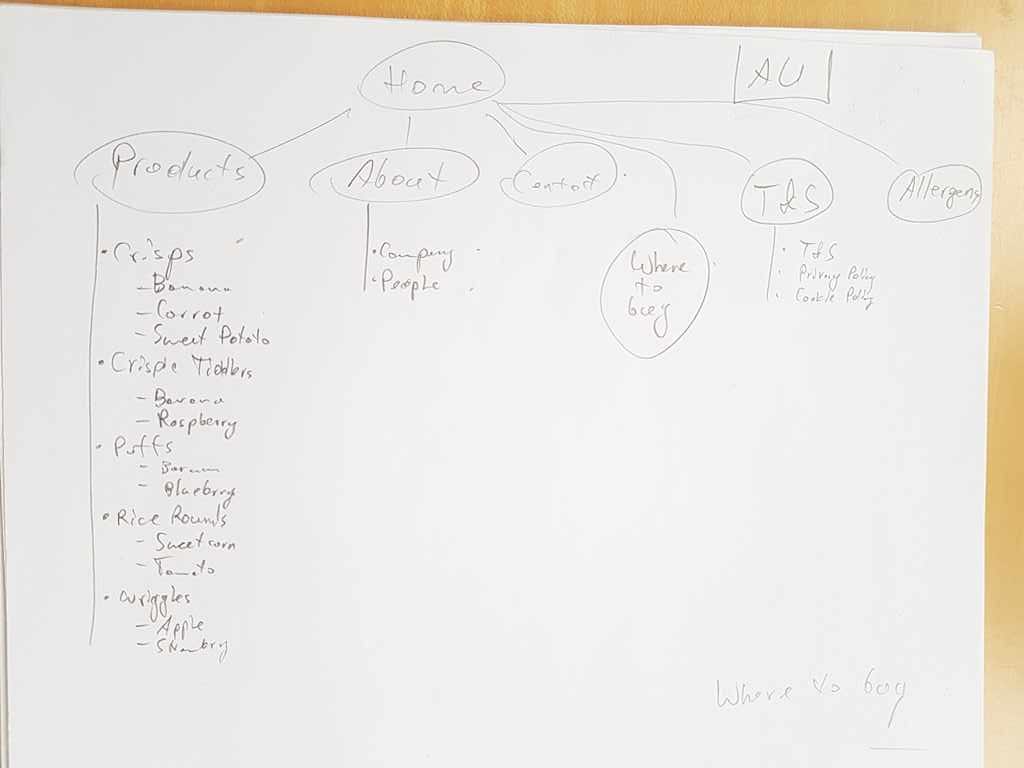 Home
AU
Products
About
Contact
T&S
Allergens
Where
to
buy
• Crisps
– Banana
– Carrot
– Sweet Potato
• Crispie Tiddlers
– Banana
– Raspberry
• Puffs
– Banana
– Blueberry
• Rice Rounds
– Sweetcorn
– Tomato
• Wriggles
– Apple
– Strawbry
• Company
• People
• T&S
• Privacy Policy
• Cookie Policy
Where to buy